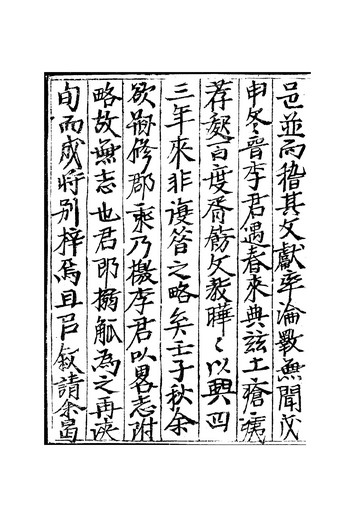 邑並而稽其文獻率淪斁無聞戊
申冬晉李君遇春來典茲土瘡痍
荐甦百度胥飭文教曄〻以興四
三年來非謾答之略矣壬子秋余
欲修郡乘乃檄李君以畧志附
略故無志也君即搦觚為之再浹
旬而成將别梓焉且㠯敘請余曷